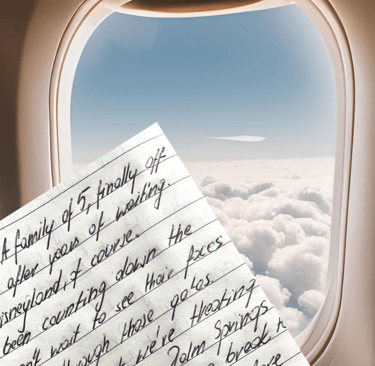 A family of 5, finally off
after years of waiting.
isneyland, of course.
been counting down the
n't wait to see their faces
hrough those gates.
t we're
Palm Springs
break, t